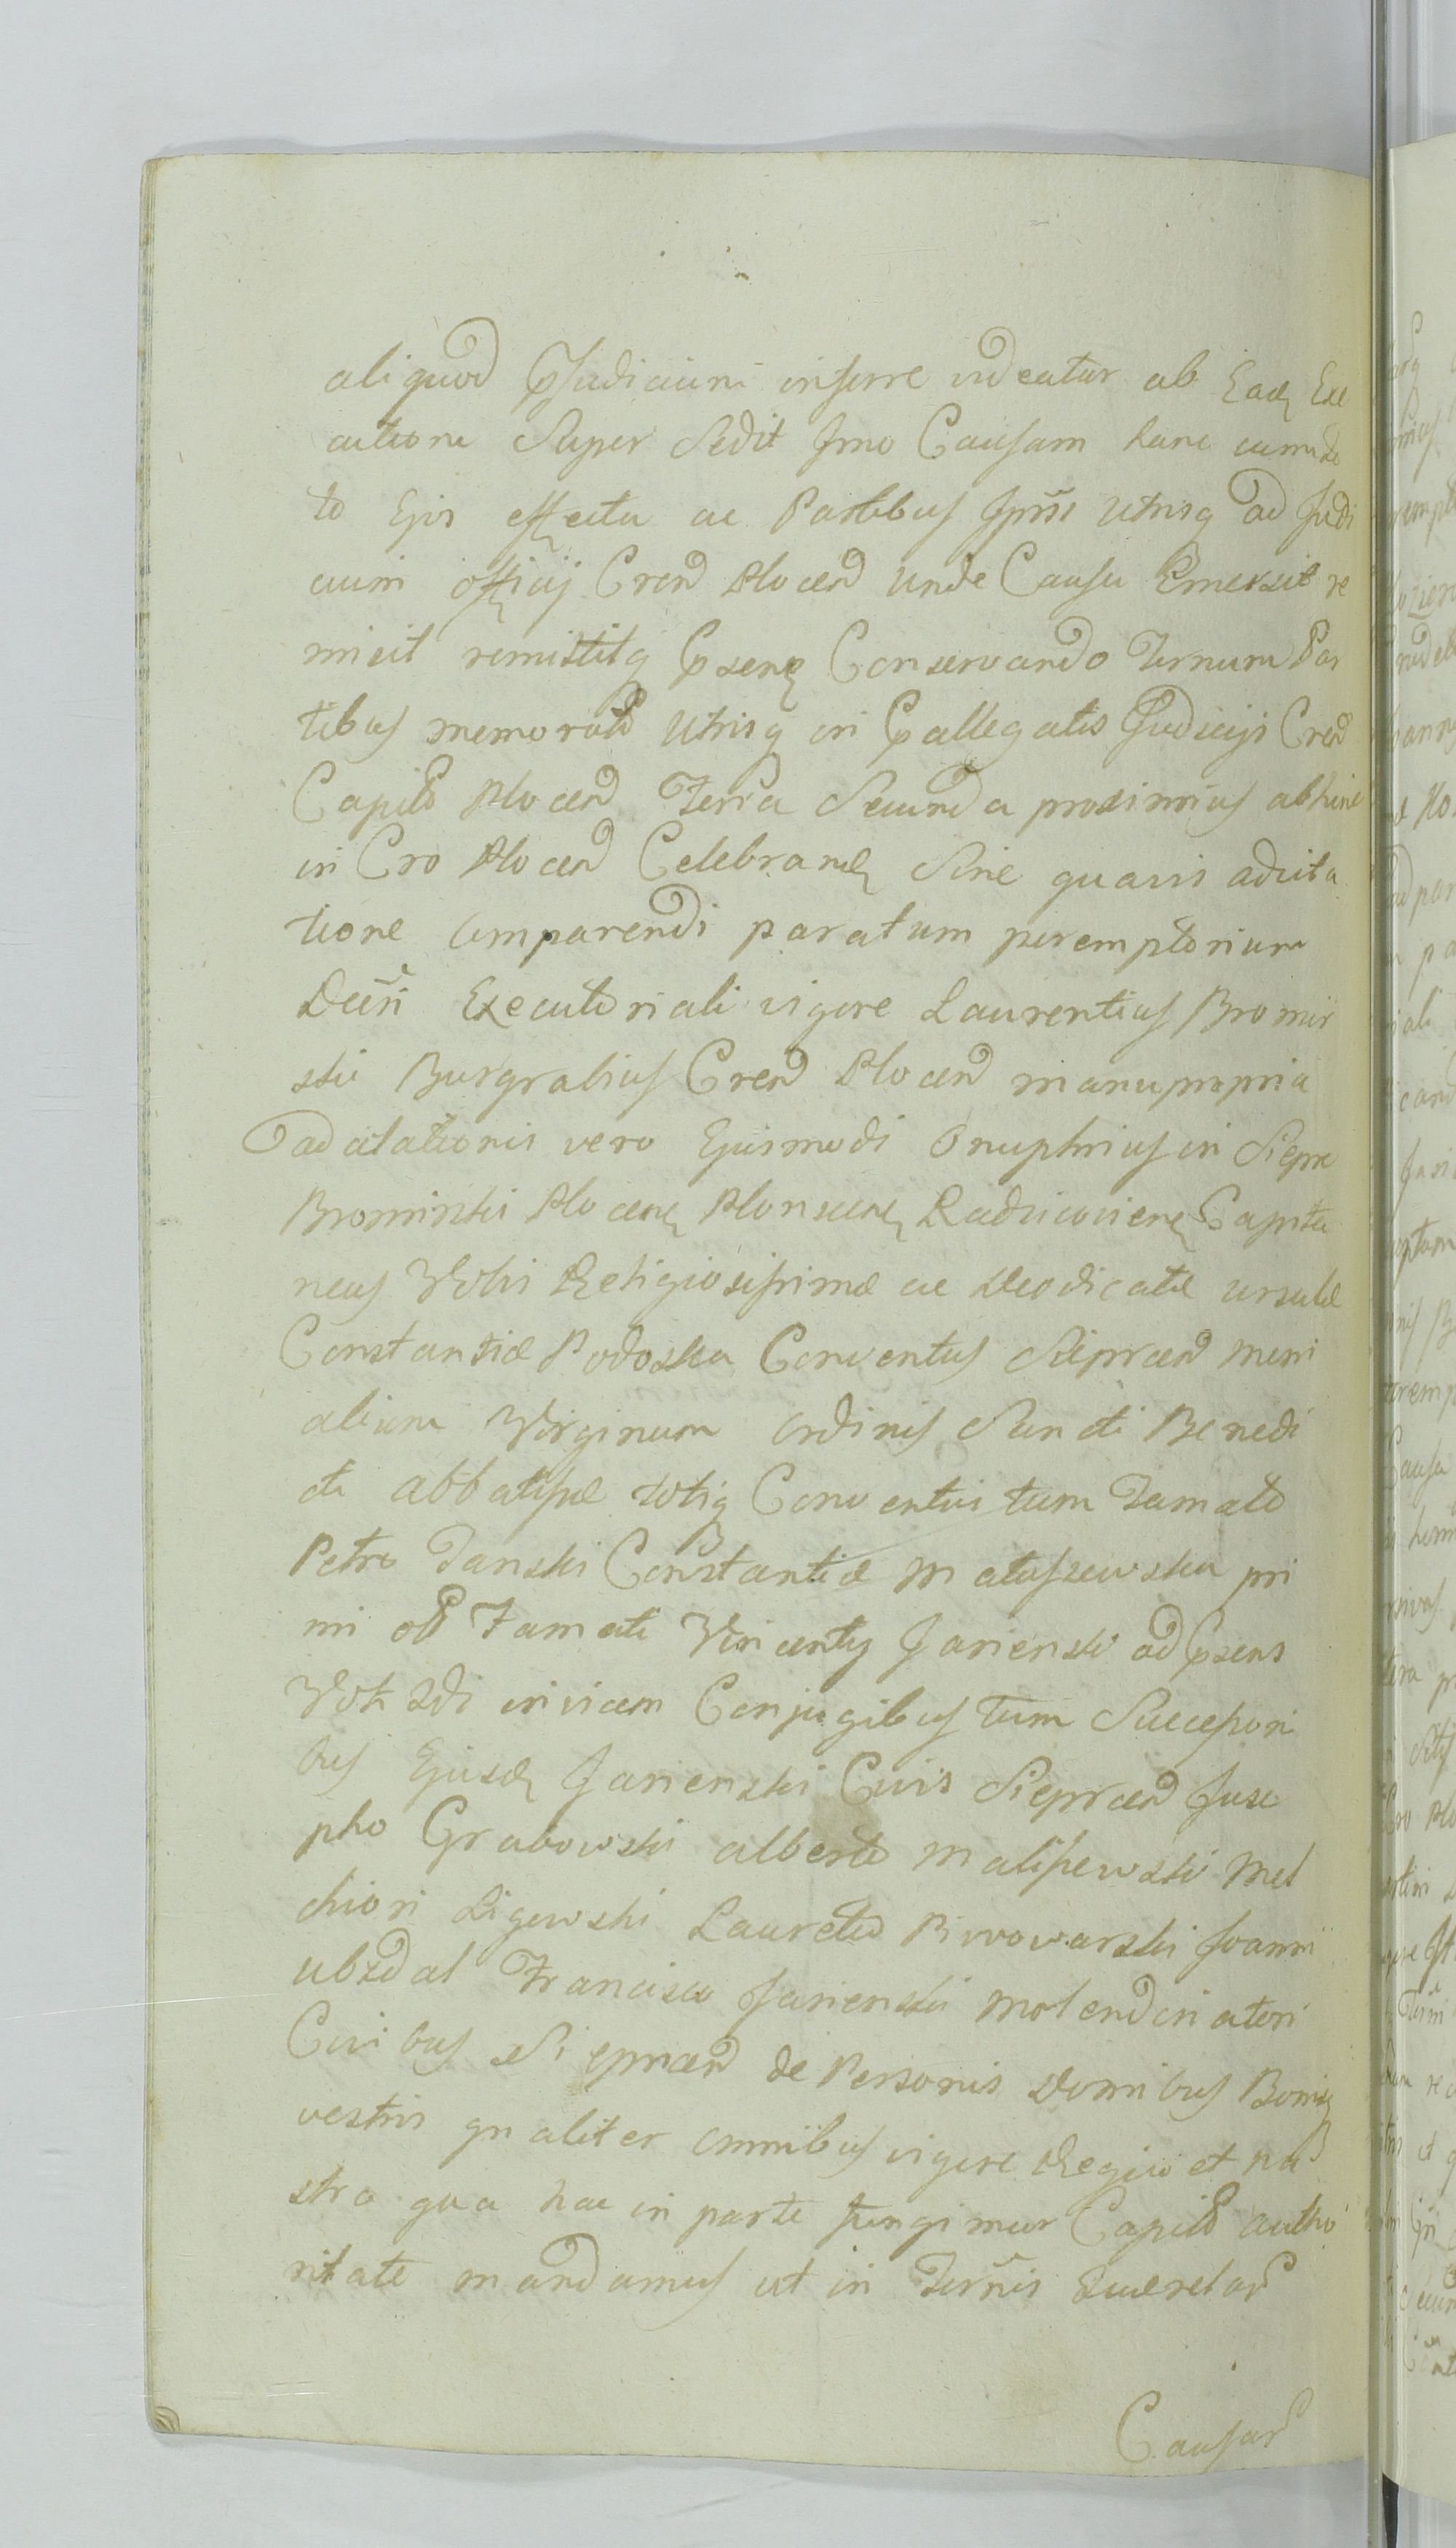 aliquod Pjudicium inferre videatur ab Eadę Exe
cutione Super Sedit Imo Causam hanc cum to
to Ejus effectu ac Partibus Ipsis utrisq ad Judi
cium officij Cren Plocen unde Causa Emersit re
misit remittitq Psenę Conservando Ternum Par
tibus memorat utrisq in Pallegatis Judicijs Cren
Capit Plocen Feria Secunda proximius abhinc
in Cro Plocen Celebranę Sine quavis adcita
tione Comparendi paratum peremptorium
Decri Executoriali vigore Laurentius Bromir
ski Burgrabius Cren Plocen manu propria
adcitationis vero Ejusmodi Onuphrius in Siepre
Bromirski Plocenę Plonscenę Radzicovienę Capita
neus Vobis Religiosissimæ ac Deodicatæ Ursulæ
Constantiæ Podoska Conventus Sieprcen moni
alium Virginum Ordinis Sancti Benedi
cti abbatissæ totiq Conventui tum Famato
Petro Danski Constantiæ Matuszewska pri
mi olt Famati Vincenty Jasienski ad Psens
Voti 2di invicem Conjugibus tum Successori
bus Ejusdę Jasienski Civis Sieprcen Jose
pho Grabowski alberto Maliszewski Mel
chiori Ligowski Laureto Piwowarski Joanni
ubzdal Francisco Jasienski Molendinatori
Civibus Sieprcen de Personis Domibus Bonisq
vestris gnaliter omnibus vigore Regia et no
stra qua hac in parte fungimur Capit autho
ritate mandamus ut in Ternis Querelar
Causar